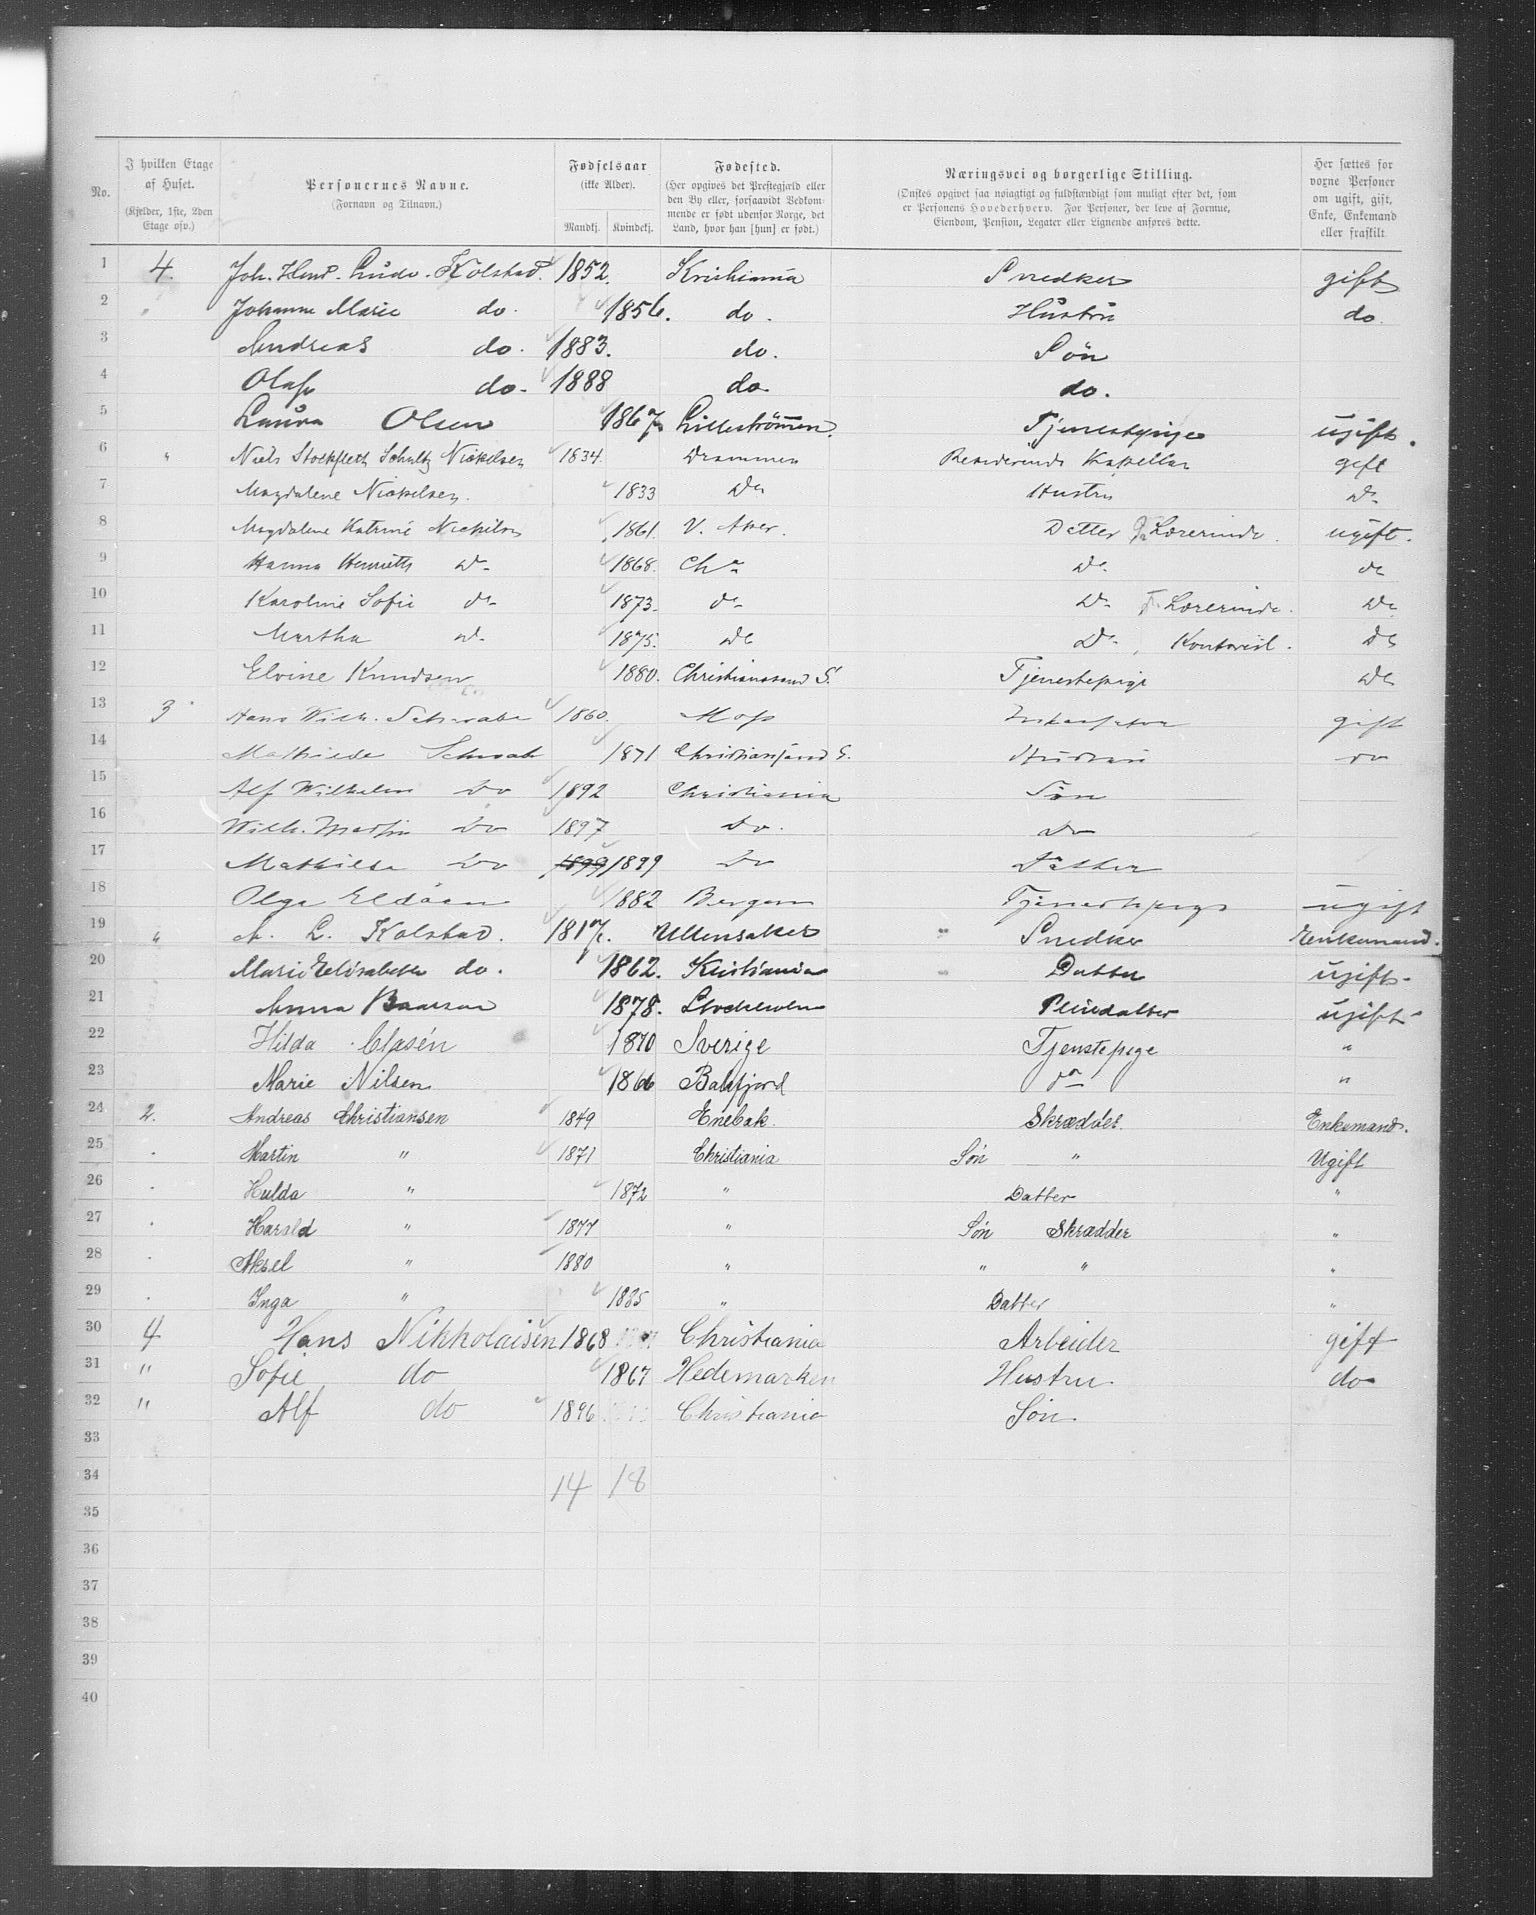 No. | I hvilken Etage af Huset. (Kjelder, 1ste, 2den Etage osv.) | Personernes Navne. (Fornavn og Tilnavn.) | Fødselsaar (ikke Alder). Mandkj. Kvindekj. | Fødested. (Her opgives det Prestegjæld eller den By eller, forsaavidt Vedkommende er født udenfor Norge, det Land, hvor han [hun] er født.) | Næringsvei og borgerlige Stilling. (Ønskes opgivet saa nøiagtigt og fuldstændigt som muligt efter det, som er Personens Hovederhverv. For Personer, der leve af Formue, Eiendom, Pension, Legater eller Lignende anføres dette.) | Her sættes for voxne Personer om ugift, gift, Enke, Enkemand eller fraskilt
1 4. Joh. Henr. Ludv. Kolstad. 1852. Kristiania Snedker gift
2 " Johanne Marie do. 1856. do. Hustru do.
3 Andreas do. 1883. do. Søn
4 Olaf do. 1888 do do.
5 Laura Olsen 1867. Lillestrømmen. Tjenestepige ugift.
6 " Niels Stockfleth Schultz Nickelsen 1834. Drammen Residerende Kapellan gift
7 Magdalene Nickelsen. 1833 Do Hustru Do
8 Magdalene Katrine Nickelsen 1861. V. Aker. Datter Lærerinde. ugift.
9 Hanna Henriette Do 1868. Cha Do. do
10 Karoline Sofie do 1873. do Do Lærerinde. Do
11 Martha do. 1875. do Do, Kontorist. Do
12 Elvine Knudsen 1880. Christianssand S. Tjenestepige Do
13 3 Hans Wilh. Schwabe 1860. Moss gift
14 Mathilde Schwabe 1871 Christiansand S. Hustru do
15 Alf Wilhelm Do 1892 Christiania Søn
16 Wilh. Martin Do 1897 Do. Do
17 Mathilde Do 1899 1899 Do Datter
18 Olga 1882 Bergen Tjenestepige ugift
19 " A. L. Kolstad. 1817. Ullensaker " Snedker Enkemand.
20 Marie Elisabeth do. 1862. Kristiania " Datter ugift
21 Anna 1878. Stockholm Pleiedatter ugift
22 Hilda Clasén 1870 Sverige Tjenstepige "
23 Marie Nilsen 1866 Balsfjord do "
24 2. Andreas Christiansen 1849 Enebak. Skrædder. Enkemand.
25 . Martin " 1871 Christiania Søn " Ugift
26 . Hulda " 1872 " Datter "
27 . Harald " 1877 " Søn Skrædder "
28 . Aksel " 1880 " " " "
29 . Inga " 1885 " Datter "
30 4 Hans Nikkolaisen 1868 Christiania Arbeider gift
31 " Sofie do 1867 Hedemarken Hustru do
32 " Alf do 1896 Christiania Søn.
33
34 14 18
35
36
37
38
39
40